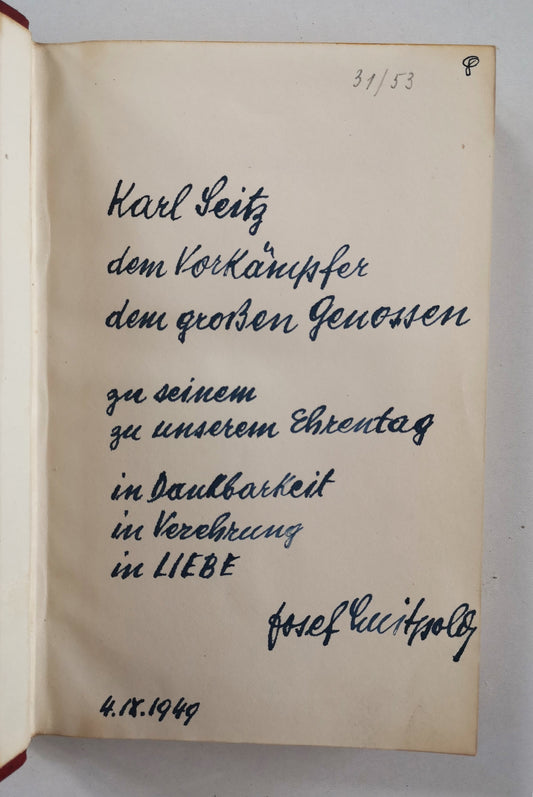 31/53
Karl Seitz
dem Vorkämpfer
dem großen Genossen
zu seinem
zu unserem Ehrentag
in Dankbarkeit
in Verehrung
in LIEBE
Josef Luitpold
4.IX.1949